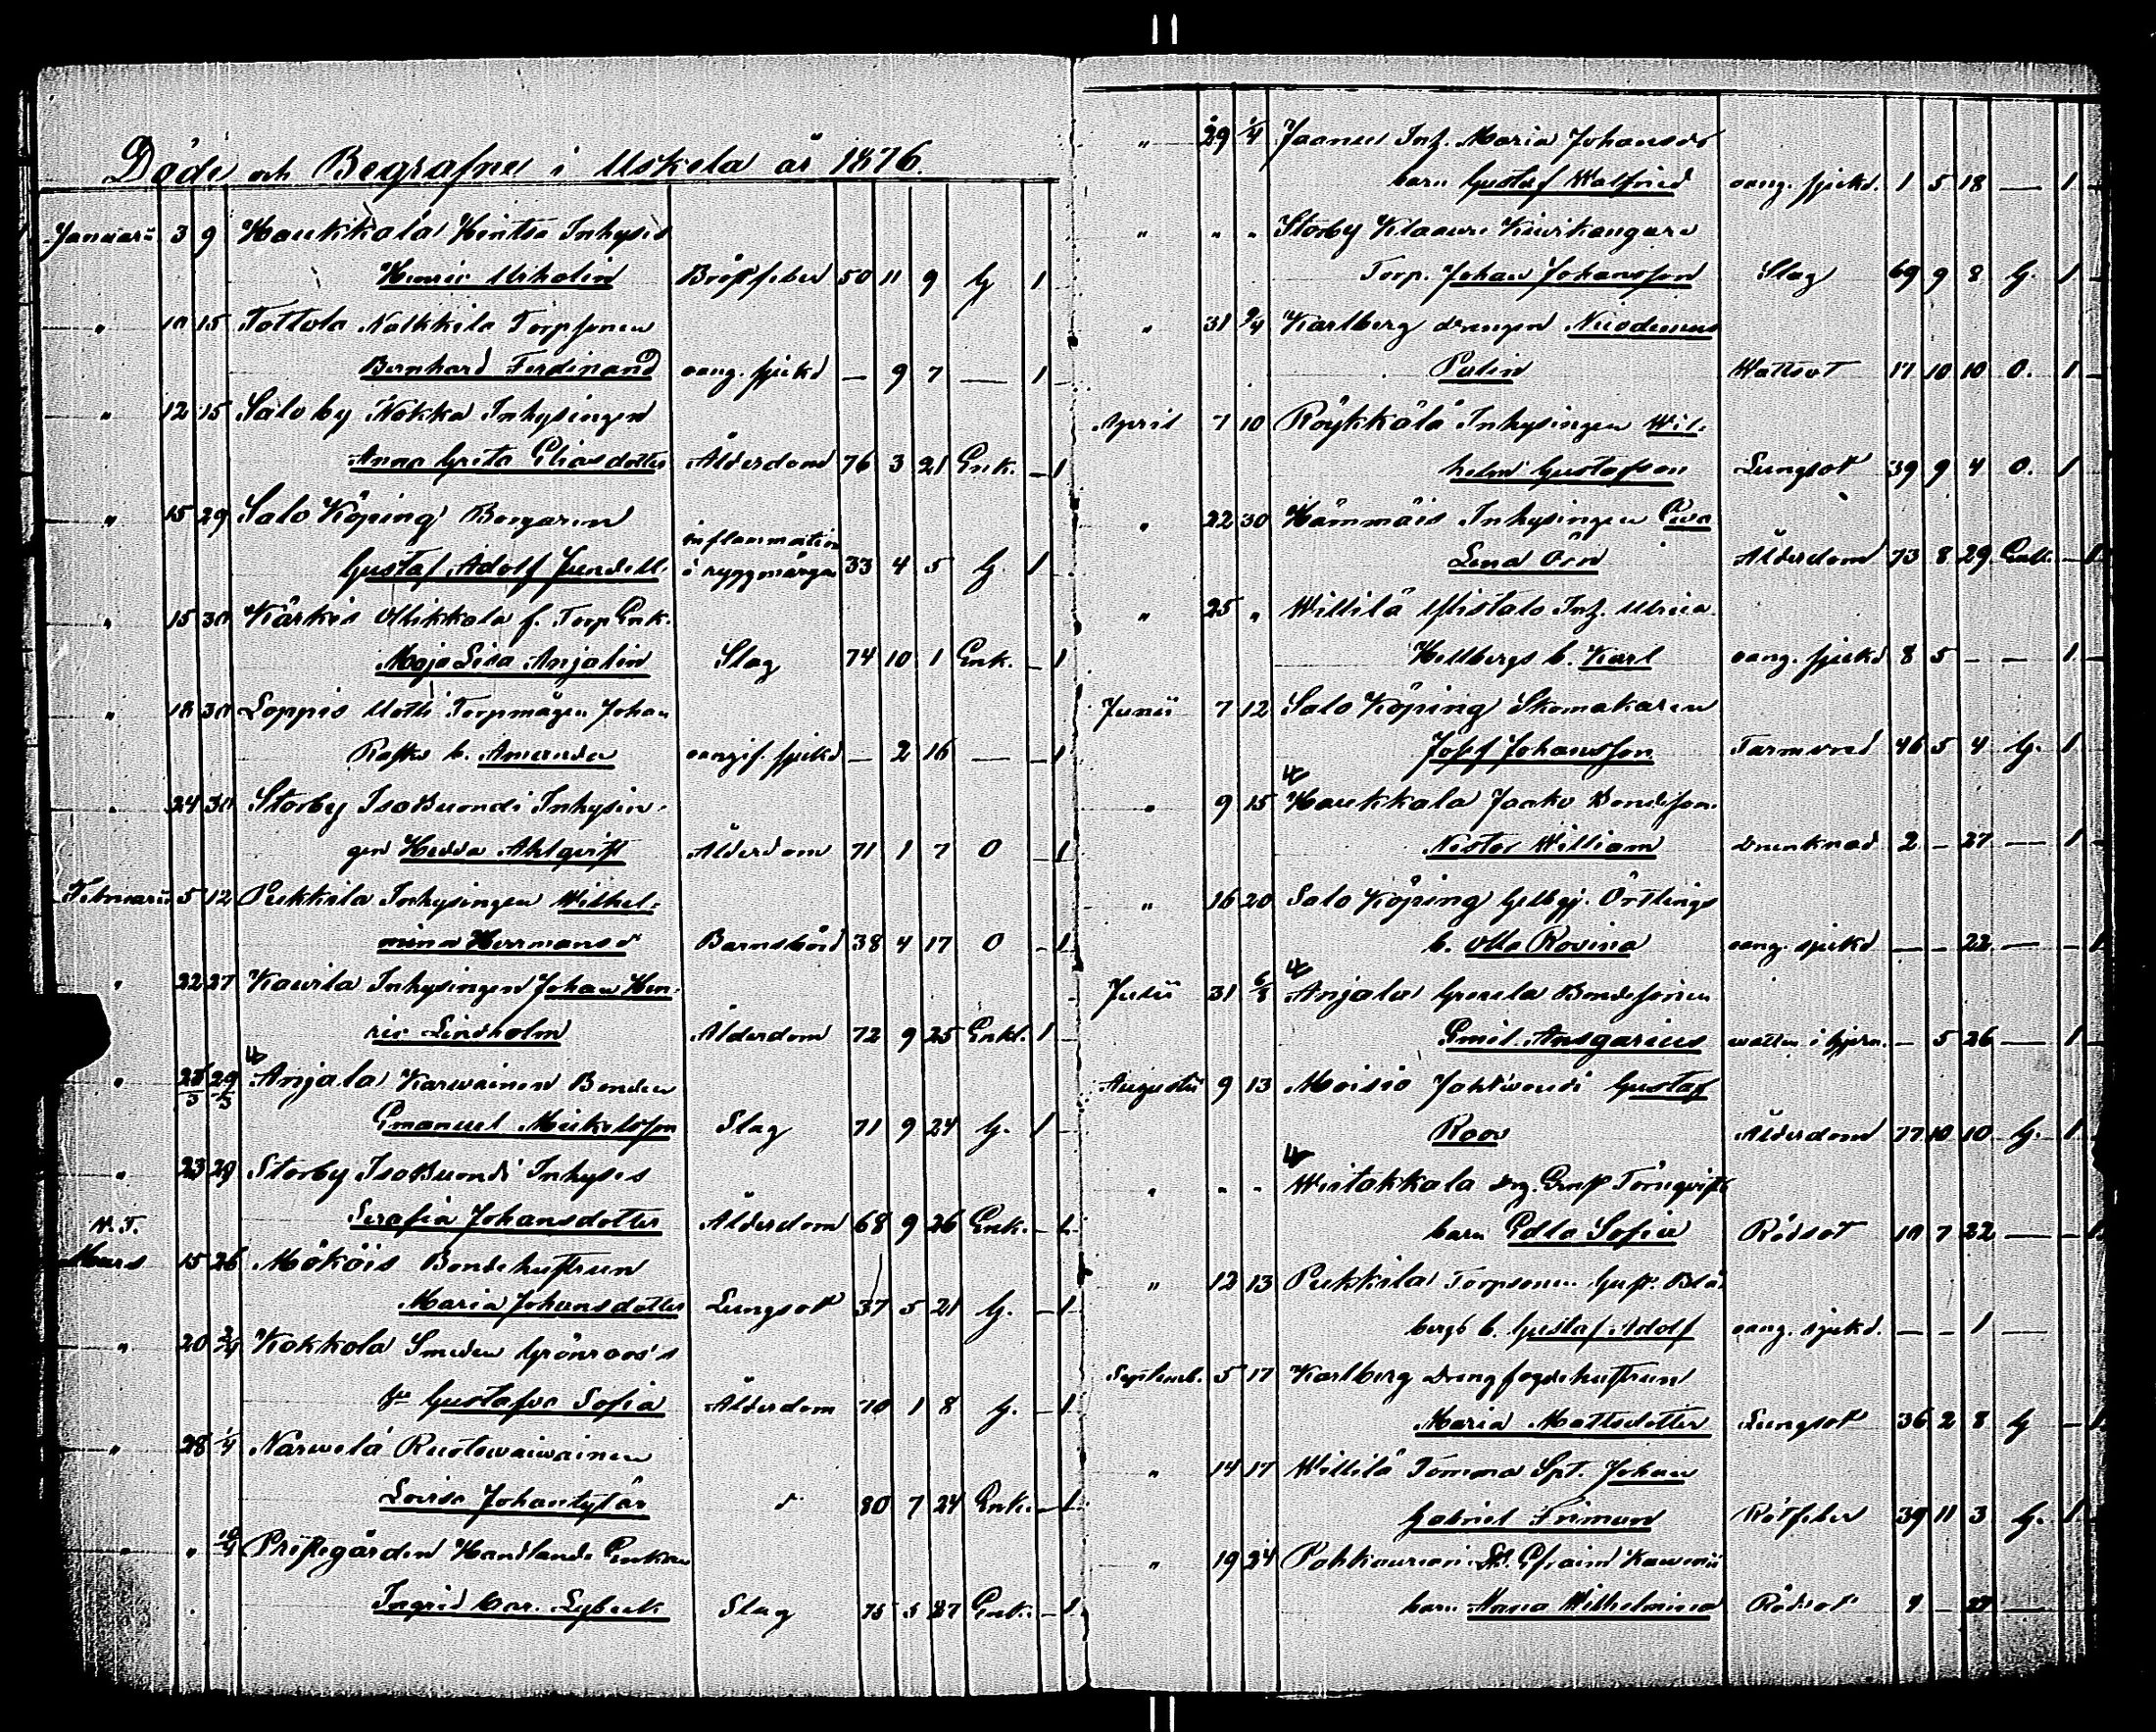 Döde och Begrafne i Uskela år 1876.
Januarii 3 9 Haukkala Hintsa Inhyses
Henric Urholin Bröstfeber 50 11 9 G 1
" 10 15 Tottola Nolkkila Torpsonen
Bernhard Ferdinand oang. sjukd — 9 7 — 1
" 12 15 Salo by Nokka Inhysingen
Anna Greta Eliasdotter Ålderdom 76 3 21 Enk. – 1
" 15 29 Salo Köping Borgaren
Gustaf Adolf inflammation i ryggmärgen 33 4 5 G. 1
" 15 30 Kärkis Ollikkala f. Torp Enk.
Maja Lisa Anjalin Slag 74 10 1 Enk. – 1
" 18 30 Loppis Uotti Torpmågen Johan
b. Amanda oangif. sjukd – 2 16 — – 1
" 24 30 Storby IsoBuondi Inhysin-
gen Hedda Ahlqvist Ålderdom 71 1 7 O – 1
Februarii 5 12 Pukkila Inhysingen Wilhel-
mina Hermansd Barnsbörd 38 4 17 O – 1
" 22 27 Kavila Inhysingen Johan Hen-
ric Lindholm Ålderdom 72 9 25 Enkl. 1
" Anjala Karwainen Bonden
Emanuel Mickelsson Slag 71 9 24 G. 1
" 23 29 Storby IsoBuondi Inhyses
Serafia Johansdotter Ålderdom 68 9 26 Enk. – 1
N. T.
Mars 15 26 Mököis Bondehustrun
Maria Johansdotter Lungsot 37 5 21 G. – 1
" 20 2/4 Kokkola Smeden Grönroos's
Gustafva Sofia Ålderdom 70 1 8 G. – 1
" 28 1/4 Närwelä Ruotuwaiwainen
Lovisa Johantytär d 80 7 24 Enk. – 1
" " Prestegården Handlande Enkan
Ingrid Car. Lybeck Slag 75 5 27 Enk. – 1
" 29 1/4 Jaanu Inh. Maria Johansds
barn Gustaf Walfrid oang. sjukd. 1 5 18 — 1
" " " Storby Klaavu Kiurikangare
Torp. Johan Johansson Slag 69 9 8 G. 1
" 31 2/4 Karlberg drengen Nicodemus
Palin Wattsot 17 10 10 O. 1
April 7 10 Röykkälä Inhysingen Wil-
helm Gustafsson Lungsot 39 9 4 O. 1
" 22 30 Hämmäis Inhysingen Eva
Lena Örn Ålderdom 73 8 29 Enk. – 1
" 25 " Willilä Ylistalo Inh. Ulrica
Hellbergs b. Karl oang. sjukd 8 5 – – 1
Junii 7 12 Salo Köping Skomakaren
Josef Johansson Tarmvred 46 5 4 G. 1
" 9 15 Haukkala Jaako Bondeson.
Nestor William Drunknad 2 – 27 — 1
" 16 20 Salo Köping Gelbgj. Örtlings
b. Olla Rovina oang. sjukd — – 22 — – 1
Julii 31 6/8 Anjala Greula Bondesonen
Emil Ansgarius watten i hjern. – 5 26 — 1
Augustii 9 13 Moisio Jahtivoudi Gustaf
Roos Ålderdom 77 10 10 G. 1
" " " Wiitakkala drg. Ernst Törnqvists
barn Edla Sofia Rödsot 10 7 22 — – 1
" 12 13 Pukkila Torpsonen Gust. Blå-
bergs b. Gustaf Adolf oang. sjukd. – – 1 —
Septemb. 5 17 Karlberg Drengfogdehustrun
Maria Mattsdotter Lungsot 36 2 8 G – 1
" 14 17 Willilä Tomma Spt. Johan
Gabriel Friman Rötfeber 39 11 3 G. 1
" 19 24 Pohkavuori St. Efraim
barn Hanna Wilhelmina Rödsot – 27 —